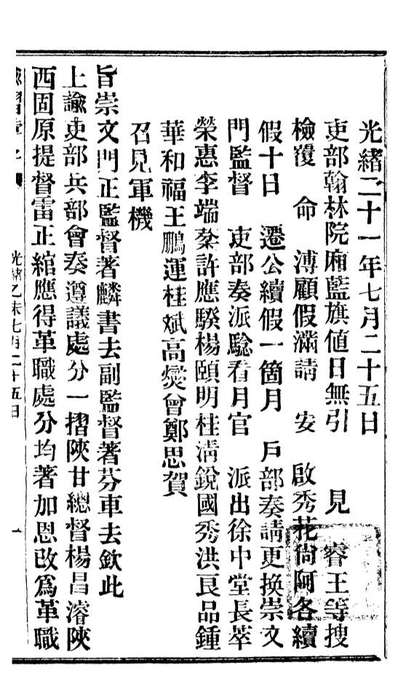 光緒二十一年七月二十五日
吏部翰林院廂藍旗值日無引　見　睿王等搜
檢覆　命　溥顧假滿請　安　啟秀花尙阿各續
假十日　遷公續假一箇月　戶部奏請更換崇文
門監督　吏部奏派驗看月官　派出徐中堂長萃
榮惠李端棻許應騤楊頤明桂淸銳國秀洪良品鍾
華和福王鵬運桂斌高燮曾鄭思賀
召見軍機
旨崇文門正監督著麟書去副監督著芬車去欽此
上諭吏部兵部會奏遵議處分一摺陝甘總督楊昌濬陝
西固原提督雷正綰應得革職處分均著加恩改爲革職
光緒乙未七月二十五日
一